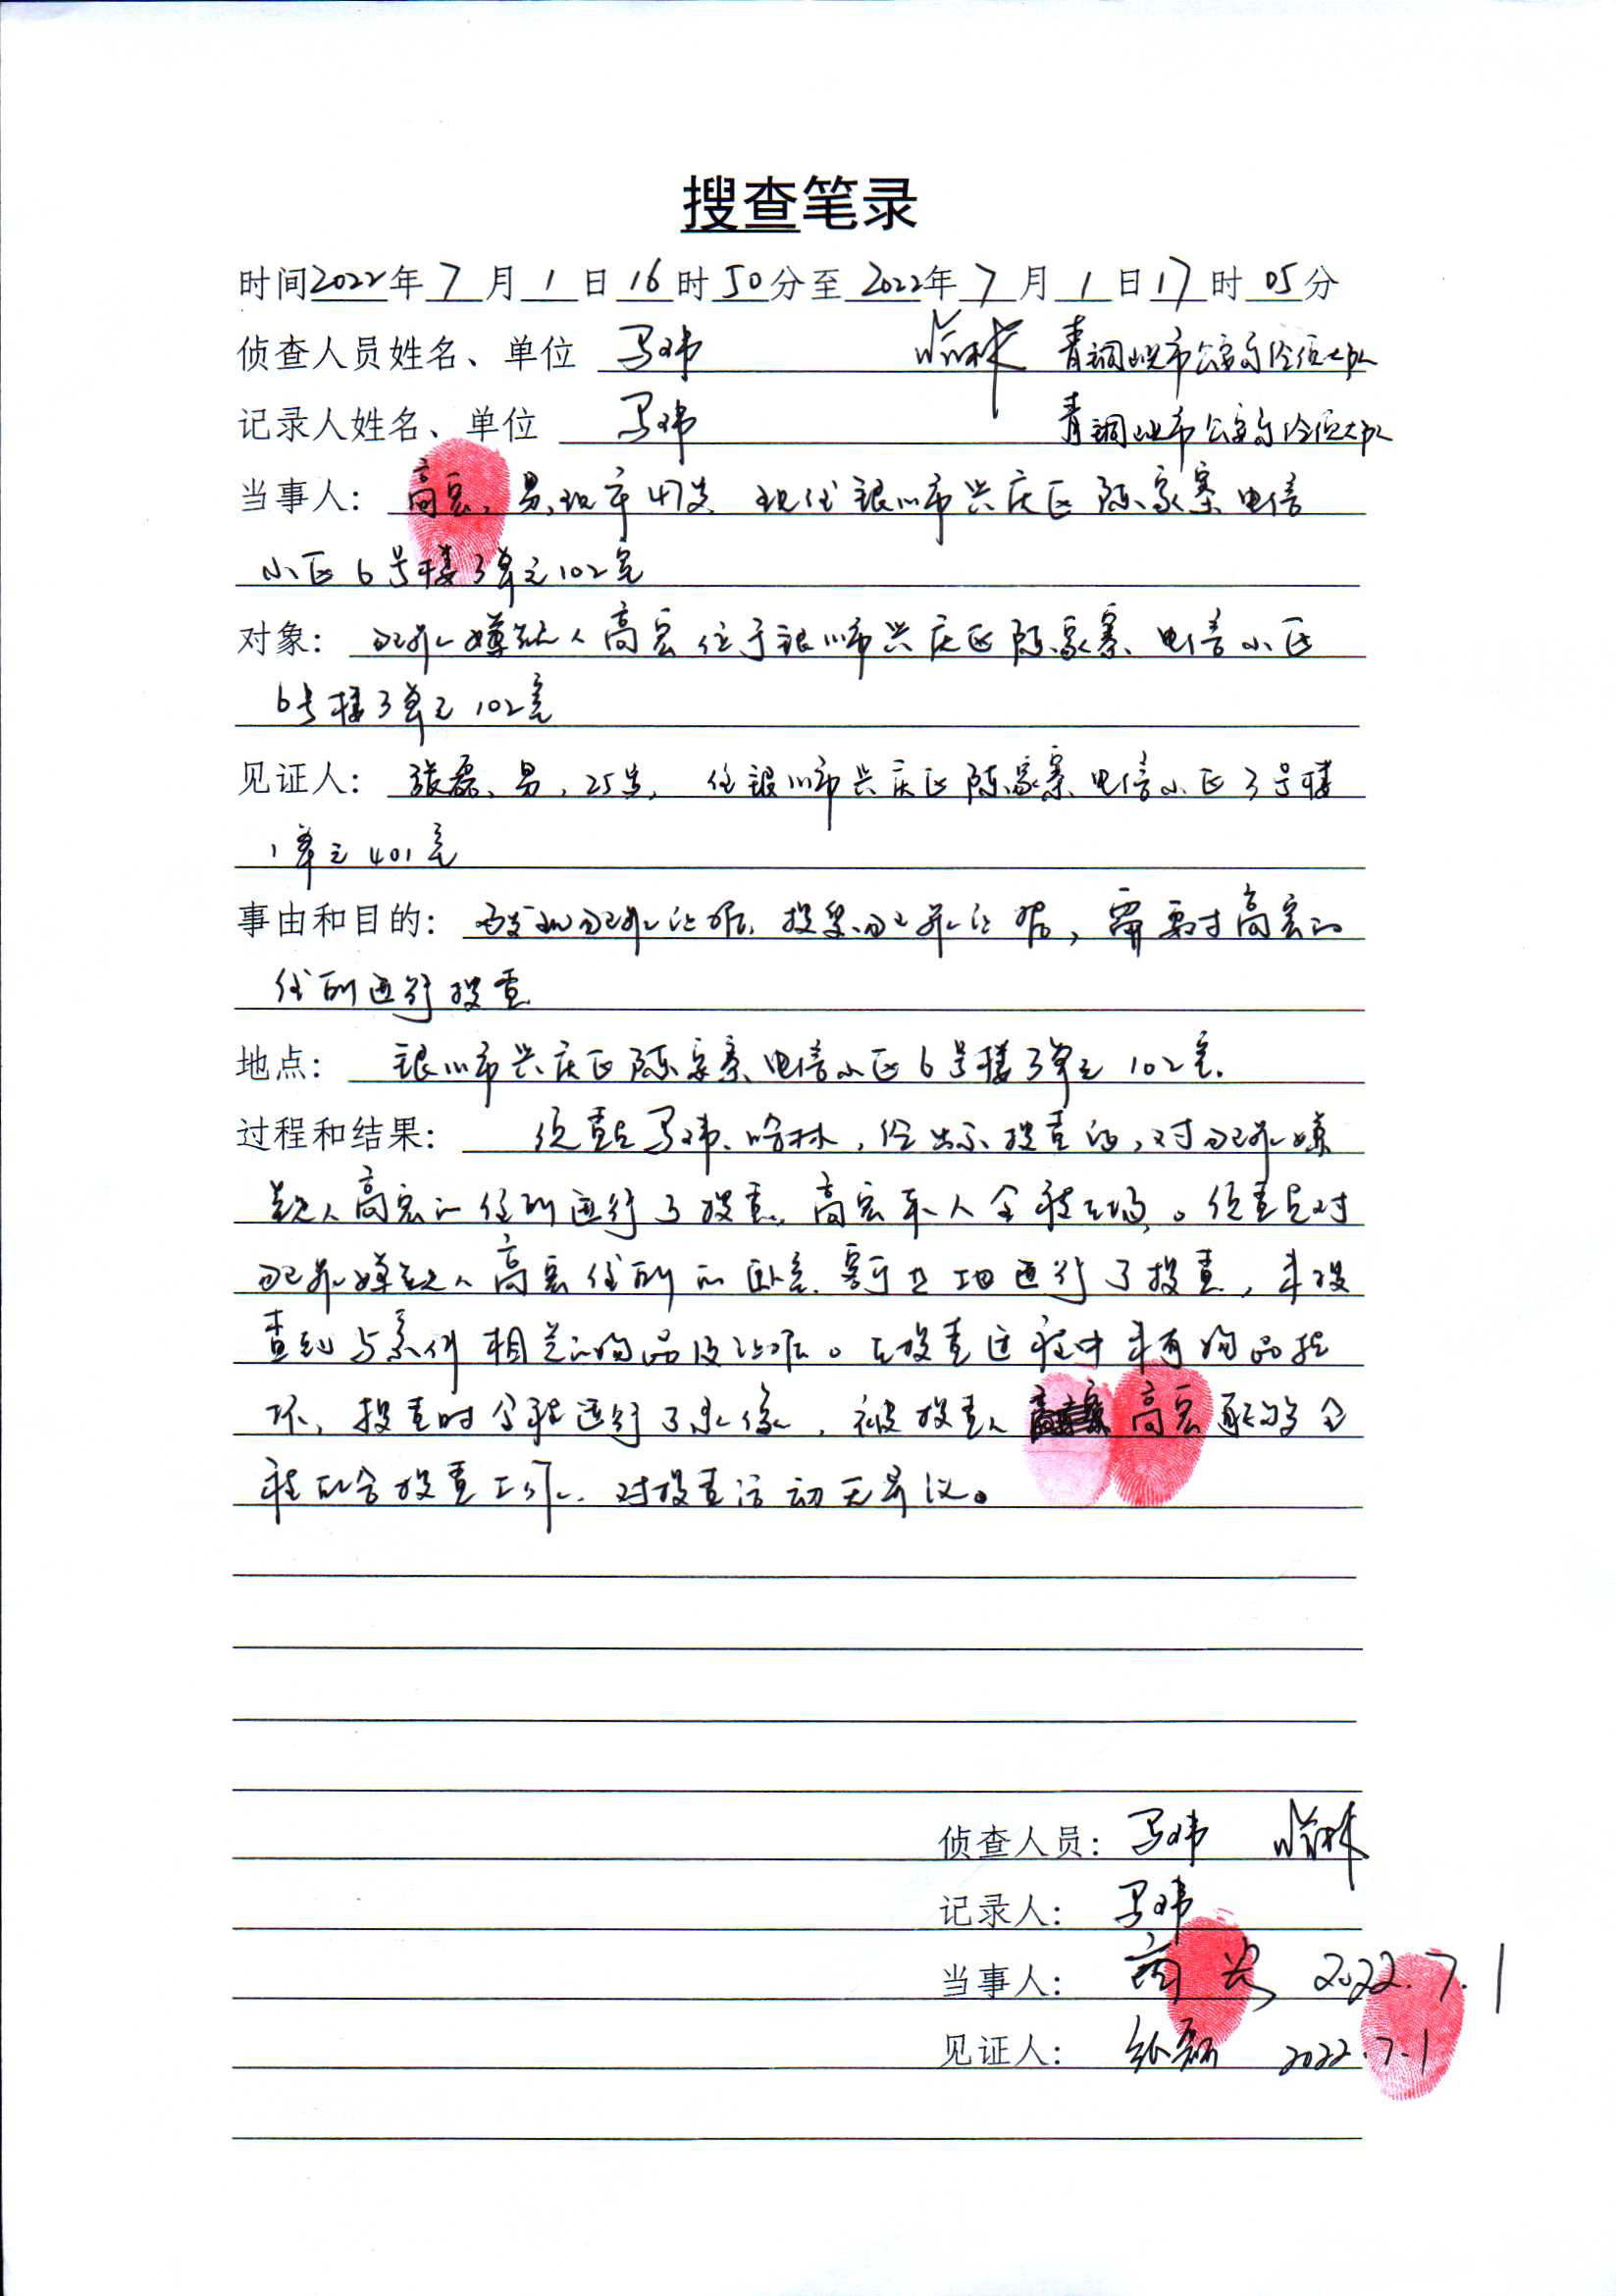 搜查笔录
时间2022年7月1日16时50分至2022年7月1日17时05分
侦查人员姓名、单位 马玮 哈林 青铜峡市公安局经侦大队
记录人姓名、单位 马玮 青铜峡市公安局经侦大队
当事人：高宏，男，现年47岁 现住银川市兴庆区陈家寨电信
小区6号楼3单元102室
对象：犯罪嫌疑人高宏位于银川市兴庆区陈家寨电信小区
6号楼3单元102室
见证人：张磊，男，25岁，住银川市兴庆区陈家寨电信小区3号楼
1单元401室
事由和目的：为发现犯罪证据，搜集犯罪证据，需要对高宏的
住所进行搜查
地点：银川市兴庆区陈家寨电信小区6号楼3单元102室.
过程和结果：侦查员马玮、哈林，经出示搜查证，对犯罪嫌
疑人高宏的住所进行了搜查，高宏本人全程在场。侦查员对
犯罪嫌疑人高宏住所的卧室、客厅 进行了搜查，未搜
查到与案件相关的物品及证据。在搜查过程中未有物品损
坏，搜查时全程进行了录像，被搜查人高宏 能够全
程配合搜查工作，对搜查活动无异议。
侦查人员：马玮 哈林
记录人：马玮
当事人：高宏 2022.7.1
见证人：张磊 2022.7.1